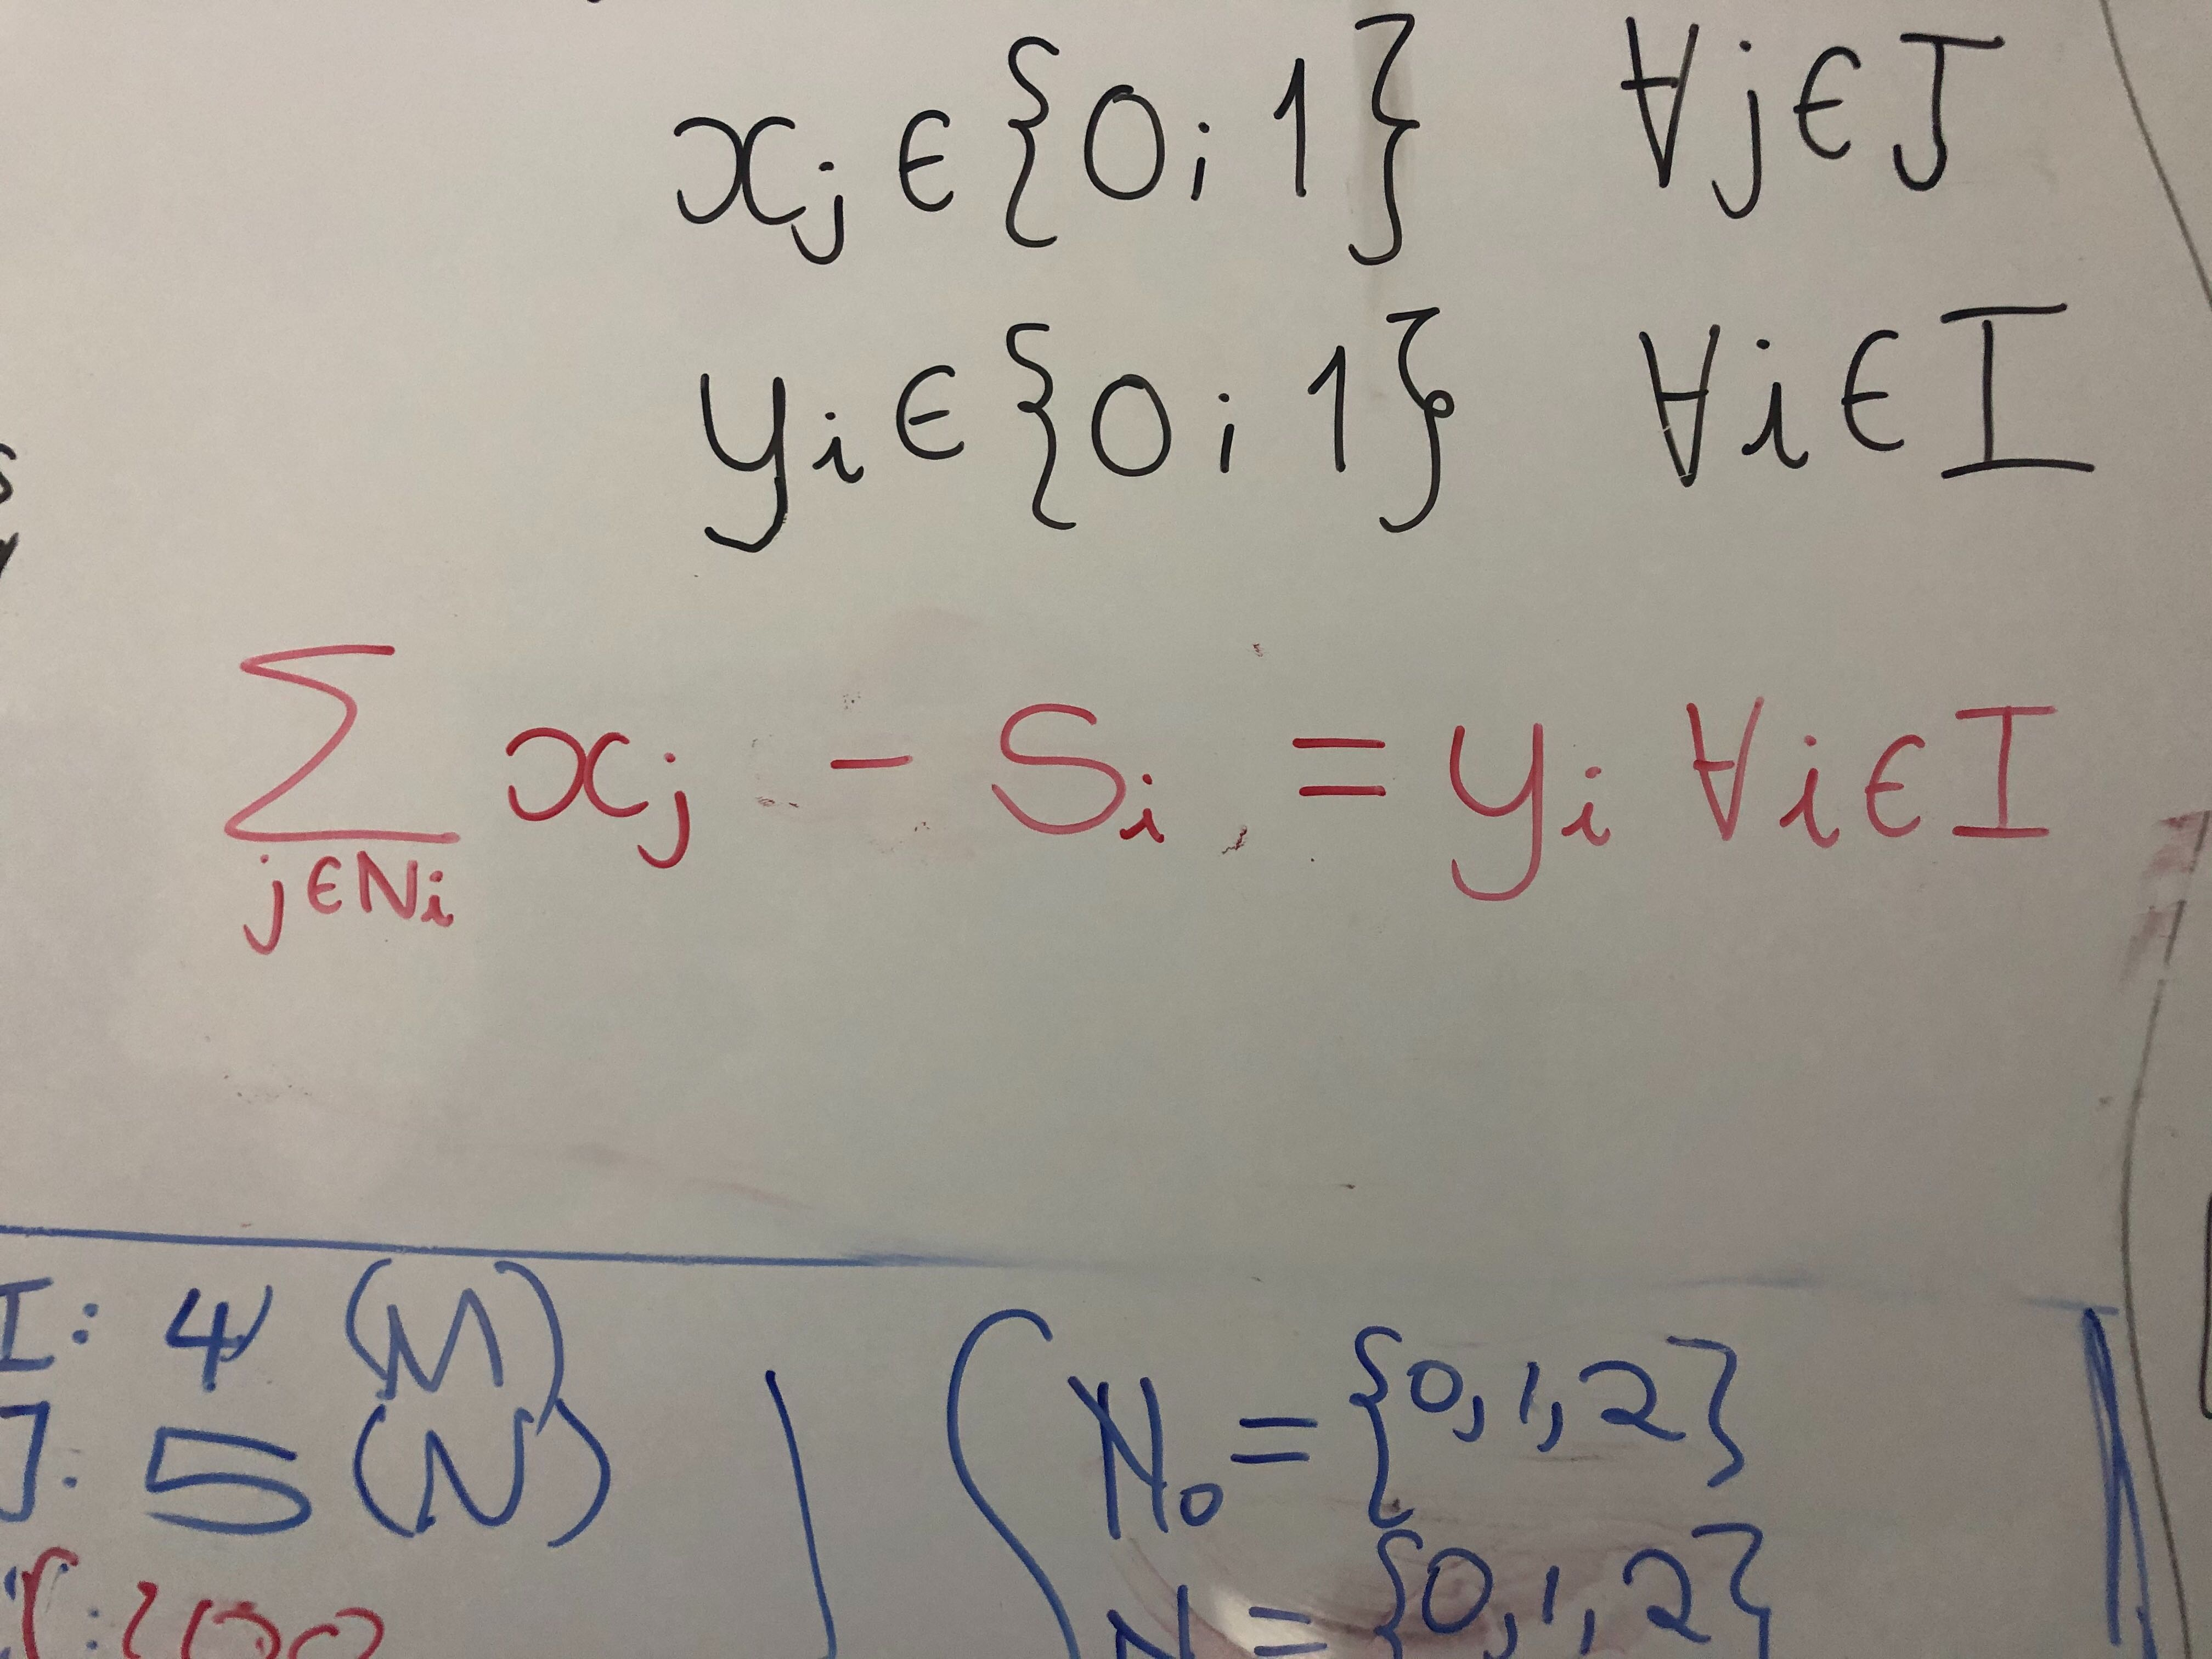 xj ∈ {0; 1} ∀j∈J
yi ∈ {0; 1} ∀i∈I
∑ xj - Si = yi ∀i∈I
j∈Ni
I: 4 (M)
J: 5 (N)
N0 = {0,1,2}
= {0,1,2}